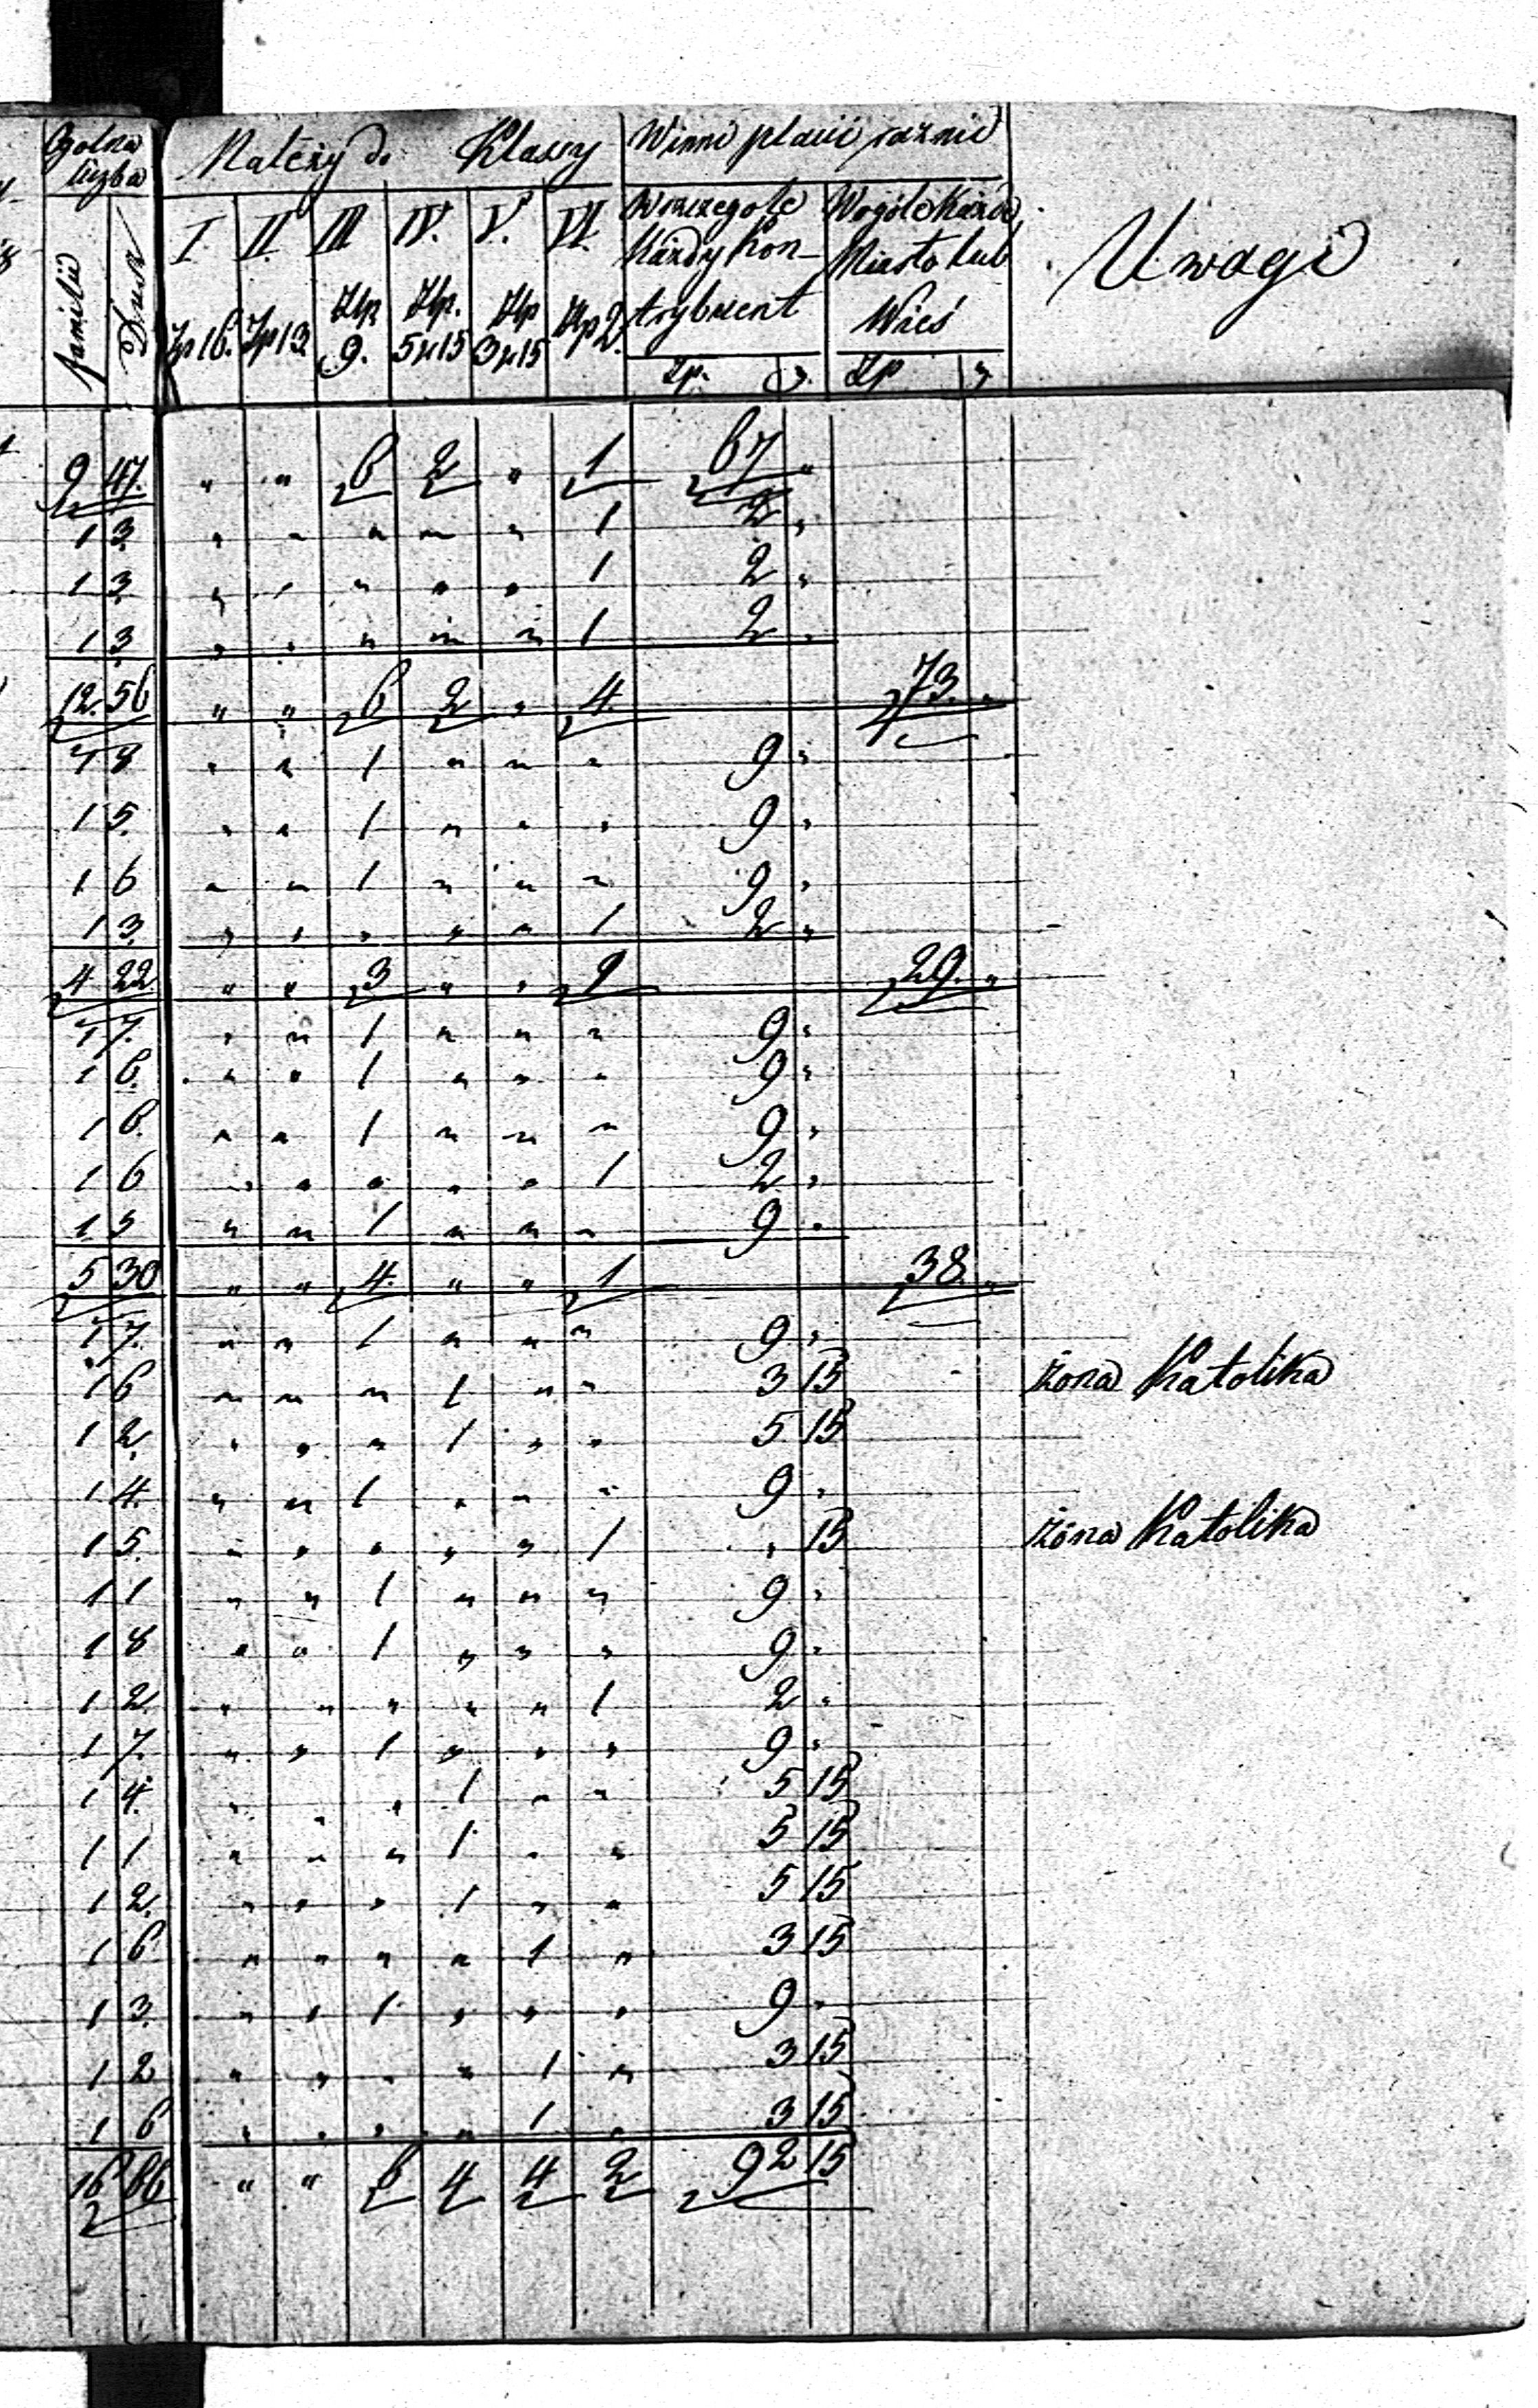 Ogólna liczba | Należy do Klassy | Winni płacić rocznie | Uwagi
familii | Dusz | I. | II. | III | IV. | V. | VI. | Wszczegole każdy Kon- | Wogóle Każde
trybuent | Miasto lub Wieś
Zp 16. | Zp 13 | Złp 9. | Złp. 5 gr 15 | Złp 3 gr 15 | Złp 2. | Zp. | g. | Zp | g
9 | 47. | " | " | 6 | 2 | " | 1 | 67 | "
1 | 3 | " | " | " | " | " | 1 | 2 | "
1 | 3 | " | " | " | " | " | 1 | 2 | "
1 | 3 | " | " | " | " | " | 1 | 2 | "
12. | 56 | " | " | 6 | 2 | " | 4. | | | 73. | "
1 | 8 | " | " | 1 | " | " | " | 9 | "
1 | 5. | " | " | 1 | " | " | " | 9 | "
1 | 6 | " | " | 1 | " | " | " | 9 | "
1 | 3. | " | " | " | " | " | 1 | 2 | "
4 | 22 | " | " | 3 | " | " | 1 | | | 29. | "
1 | 7. | " | " | 1 | " | " | " | 9 | "
1 | 6. | " | " | 1 | " | " | " | 9 | "
1 | 6. | " | " | 1 | " | " | " | 9 | "
1 | 6 | " | " | " | " | " | 1 | 2 | "
1 | 5 | " | " | 1 | " | " | " | 9 | "
5 | 30 | " | " | 4. | " | " | 1 | | | 38. | "
1 | 7. | " | " | 1 | " | " | " | 9 | "
1 | 6 | " | " | " | 1 | " | " | 3 | 15 | | | żona Katolika
1 | 2. | " | " | " | 1 | " | " | 5 | 15
1 | 4. | " | " | 1 | " | " | " | 9 | "
1 | 5. | " | " | " | " | " | 1 | " | 15 | | | żona Katolika
1 | 1 | " | " | 1 | " | " | " | 9 | "
1 | 8 | " | " | 1 | " | " | " | 9 | "
1 | 2. | " | " | " | " | " | 1 | 2 | "
1 | 7. | " | " | 1 | " | " | " | 9 | "
1 | 4. | " | " | " | 1 | " | " | 5 | 15
1 | 1 | " | " | " | 1 | " | " | 5 | 15
1 | 2. | " | " | " | 1 | " | " | 5 | 15
1 | 6 | " | " | " | " | 1 | " | 3 | 15
1 | 3. | " | " | 1 | " | " | " | 9 | "
1 | 2 | " | " | " | " | 1 | " | 3 | 15
1 | 6 | " | " | " | " | 1 | " | 3 | 15
16 | 66 | " | " | 6 | 4 | 4 | 2 | 92 | 15